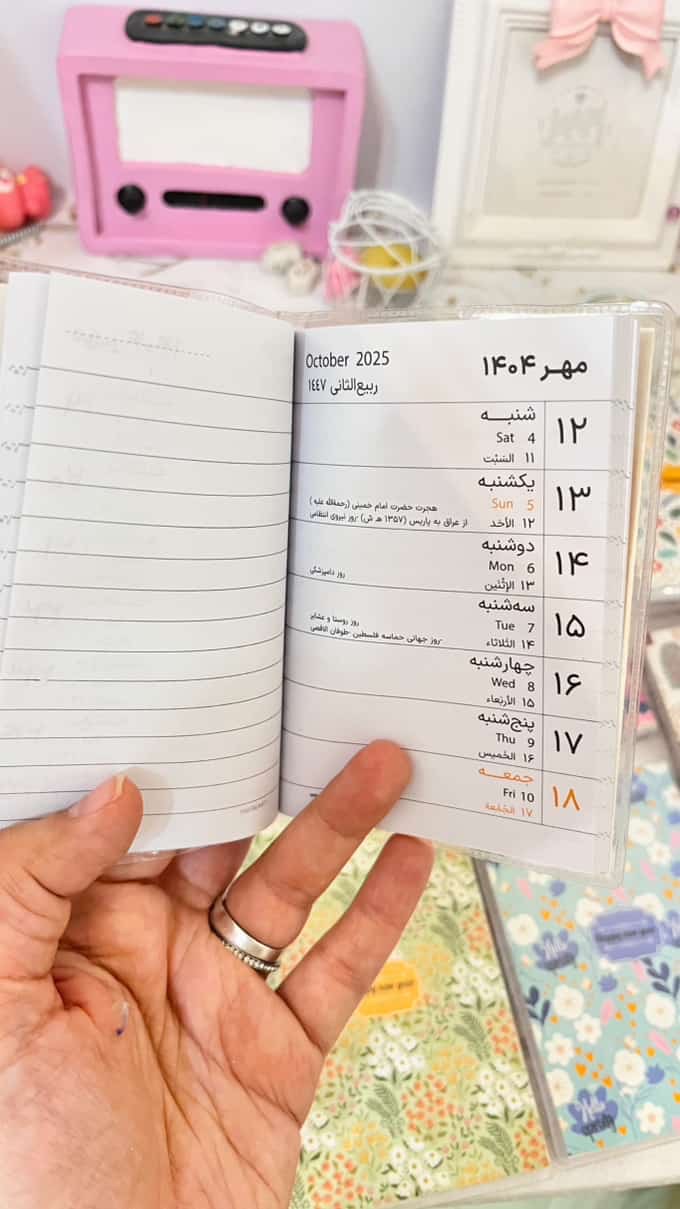 مهر ۱۴۰۴
October 2025
ربیع‌الثانی ١٤٤٧
۱۲
شنبه
Sat 4
١١ السَبْت
۱۳
یکشنبه
Sun 5
١٢ الأحَد
هجرت حضرت امام خمینی (رحمةالله علیه)
از عراق به پاریس (۱۳۵۷ هـ ش) -روز نیروی انتظامی
۱۴
دوشنبه
Mon 6
١٣ الإثْنَین
روز دامپزشکی
۱۵
سه‌شنبه
Tue 7
١٤ الثَلاثاء
روز روستا و عشایر
-روز جهانی حماسه فلسطین -طوفان الاقصی
۱۶
چهارشنبه
Wed 8
١٥ الأربَعاء
۱۷
پنج‌شنبه
Thu 9
١٦ الخَمیس
۱۸
جمعه
Fri 10
١٧ الجُمعَة